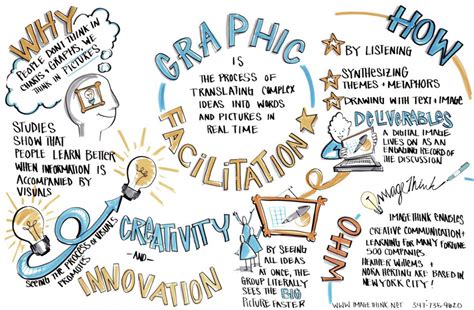 WHY
PEOPLE DON'T THINK IN
CHARTS + GRAPHS, WE
THINK IN PICTURES
STUDIES
SHOW THAT
PEOPLE LEARN BETTER
WHEN INFORMATION IS
ACCOMPANIED BY
VISUALS
SEEING THE PROCESS OF VISUALS
PROMOTES
CREATIVITY
AND
INNOVATION
GRAPHIC
FACILITATION
IS
THE PROCESS OF
TRANSLATING COMPLEX
IDEAS INTO WORDS
AND PICTURES IN
REAL TIME
BY SEEING
ALL IDEAS
AT ONCE, THE
GROUP LITERALLY
SEES THE BIG
PICTURE FASTER
HOW
BY LISTENING
SYNTHESIZING
THEMES + METAPHORS
DRAWING WITH TEXT + IMAGE
DELIVERABLES
A DIGITAL IMAGE
LIVES ON AS AN
ENGAGING RECORD OF
THE DISCUSSION
WHO
ImageThink
IMAGETHINK ENABLES
CREATIVE COMMUNICATION +
LEARNING FOR MANY FORTUNE
500 COMPANIES
HEATHER WILLEMS +
NORA HERTING ARE BASED IN
NEW YORK CITY!
WWW.IMAGETHINK.NET